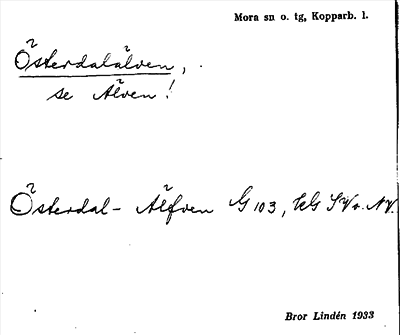 Mora sn o. tg, Kopparb. l.
Österdalälven,
se Älven!
Österdal- Älfven G 103,
Bror Lindén 1933